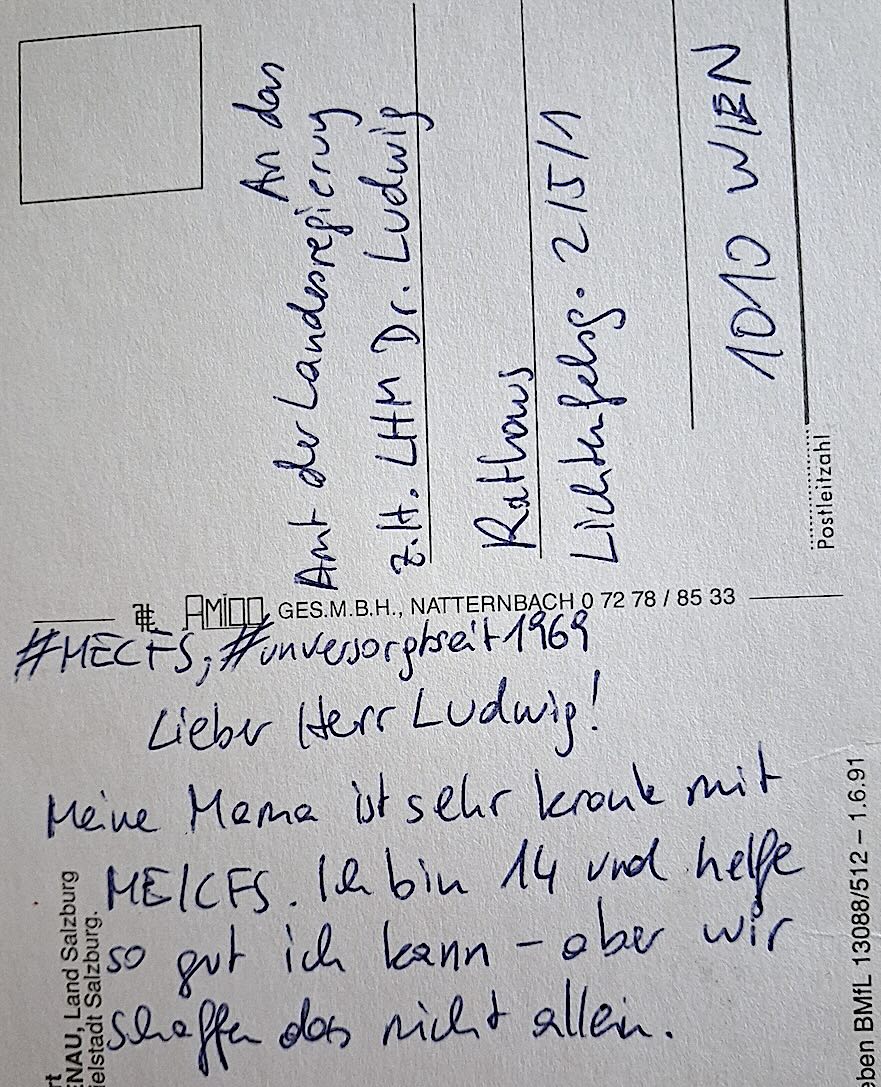 An das
Amt der Landesregierung
z.H. LHM Dr. Ludwig
Rathaus
Lichtenfelsg. 2/5/1
1010 WIEN
Postleitzahl
AMIGO GES.M.B.H., NATTERNBACH 0 72 78 / 85 33
#MECFS, #unversorgtseit1969
Lieber Herr Ludwig!
Meine Mama ist sehr krank mit
ME/CFS. Ich bin 14 und helfe
so gut ich kann – aber wir
schaffen das nicht allein.
rt
ENAU, Land Salzburg
ielstadt Salzburg.
eben BMfL 13088/512 – 1.6.91